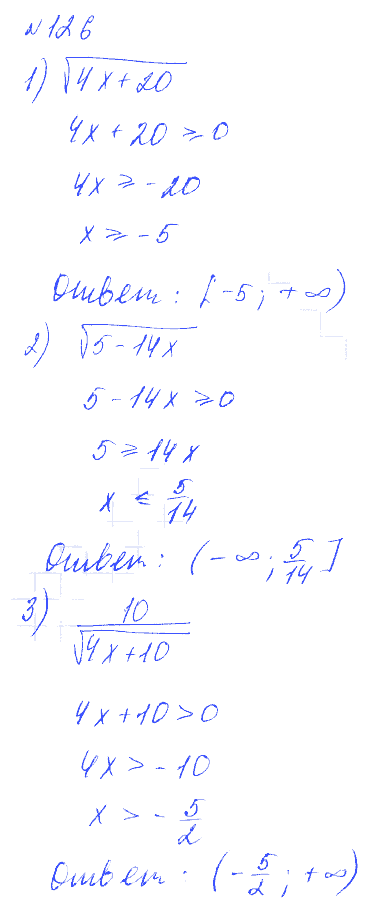 №126
1) √(4x+20)
4x+20 ⩾ 0
4x ⩾ -20
x ⩾ -5
Ответ: [-5; +∞)
2) √(5-14x)
5-14x ⩾ 0
5 ⩾ 14x
x ⩽ 5/14
Ответ: (-∞; 5/14]
3) 10/√(4x+10)
4x+10>0
4x > -10
x > -5/2
Ответ: (-5/2; +∞)